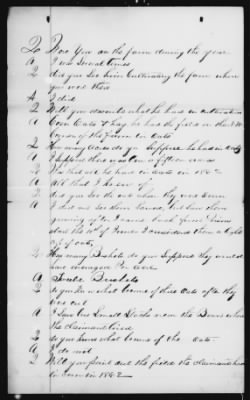 Q Were You on the farm during the year
A I was Several times
Q did you See him Cultivating the farm when
you was there
A I did
Q Will you describe what he had in cultivation
A Corn Oats & hay he had the field in the N W
Corner of the Farm in Oats
Q How many acres do you Suppose he had in Oats
A I Suppose there was ten or fifteen acres
Q Was that all he had in Oats in 1862
A All that I know of
Q did you See the Oats when they was Sown
A I did not See them Sowed, but Saw them
growing after I came back from
about the 10th of June I considered them a light
crop of oats
Q How many Bushels do you Suppose they would
have averaged Per Acre
A Twelve Bushels
Q do you know what became of these Oats after they
was cut
A I Saw One Small Stack near the Barn where
the Claimant lived
Q do you know what became of the Oats
A I do not
Q Will you point out the field the Claimant had
in Corn in 1862